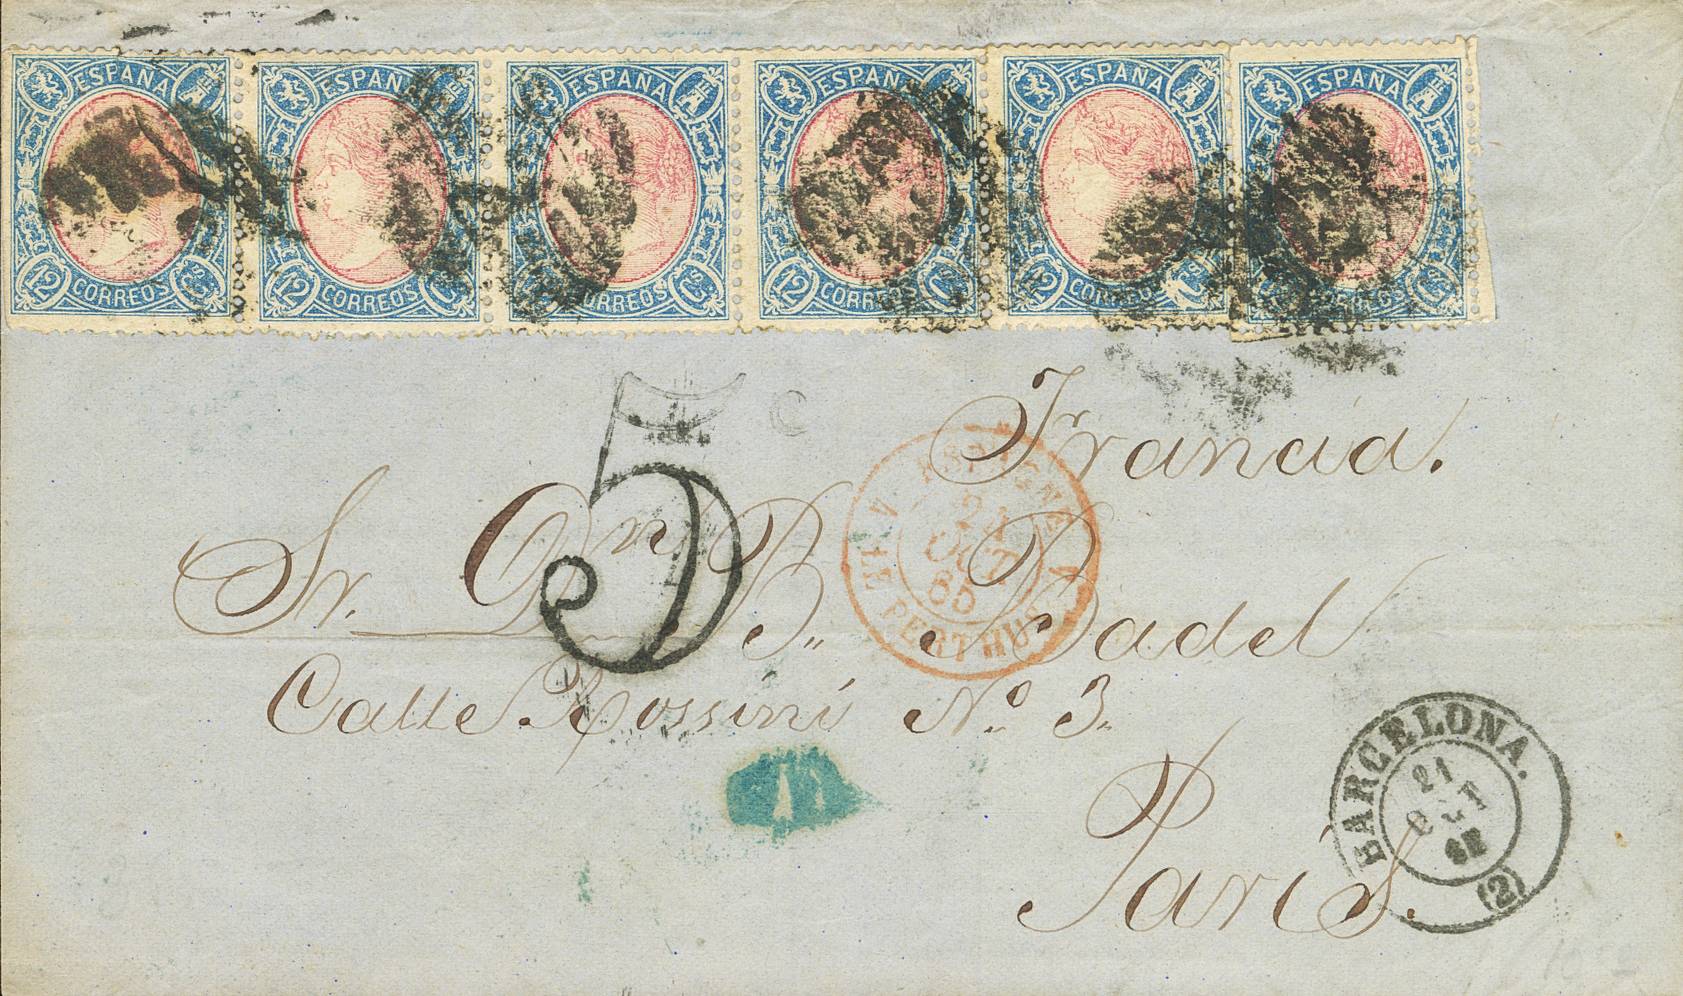 ESPAÑA ESPAÑA ESPAÑA ESPAÑA ESPAÑA ESPAÑA
12 CORREOS Cs 12 CORREOS Cs CORREOS Cs 12 CORREOS Cs 12 CORREOS Cs Cs
5
Francia.
Sr. Dn B. Badel
ESPAGNE
OCT
65
LE PERTHUS
Calle Rossini No. 3.
Paris.
BARCELONA.
21
(2)